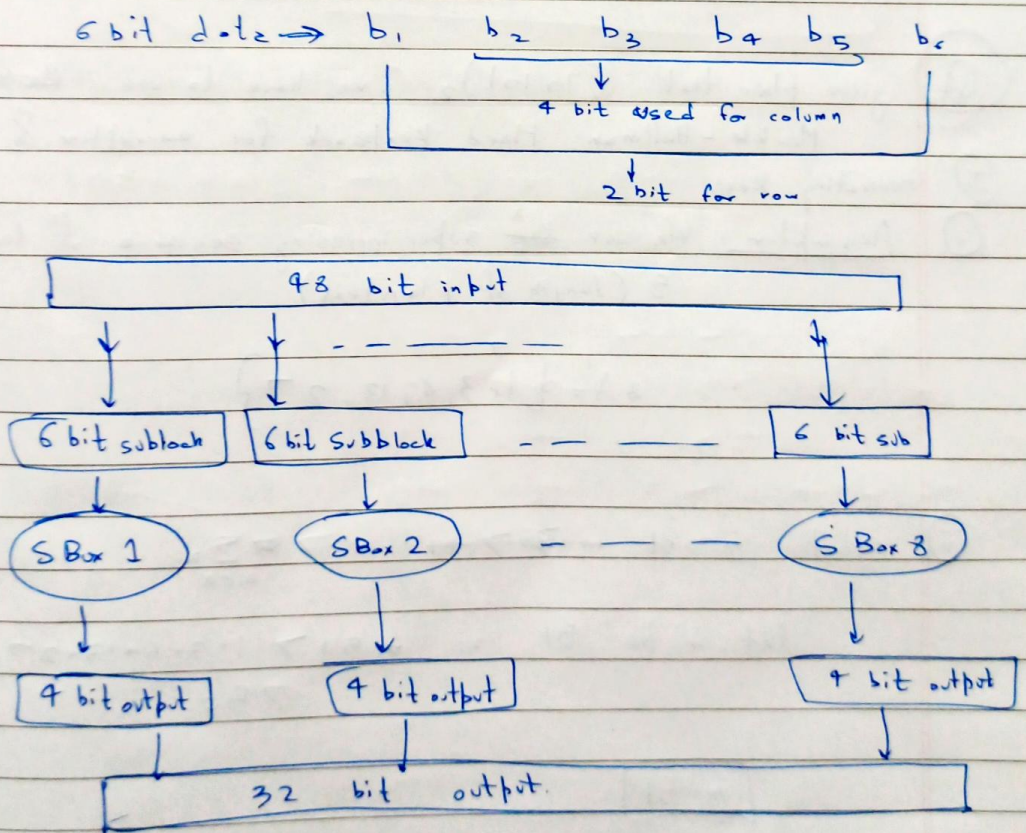 6 bit data → b1 b2 b3 b4 b5 b6
4 bit used for column
2 bit for row
48 bit input
6 bit sublock 6 bit Subblock 6 bit sub
S Box 1 SBox 2 S Box 8
4 bit output 4 bit output 4 bit output
32 bit output.